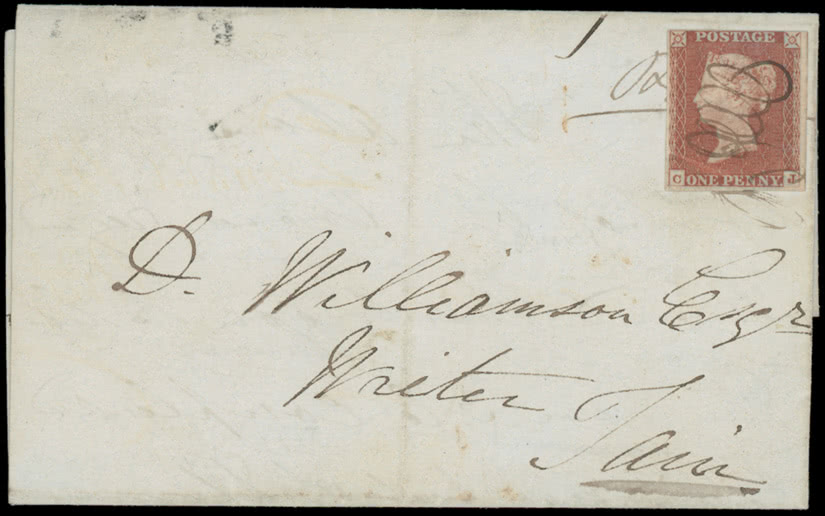 POSTAGE
ONE PENNY
C J
D. Williamson Esqr
Writer
Tain